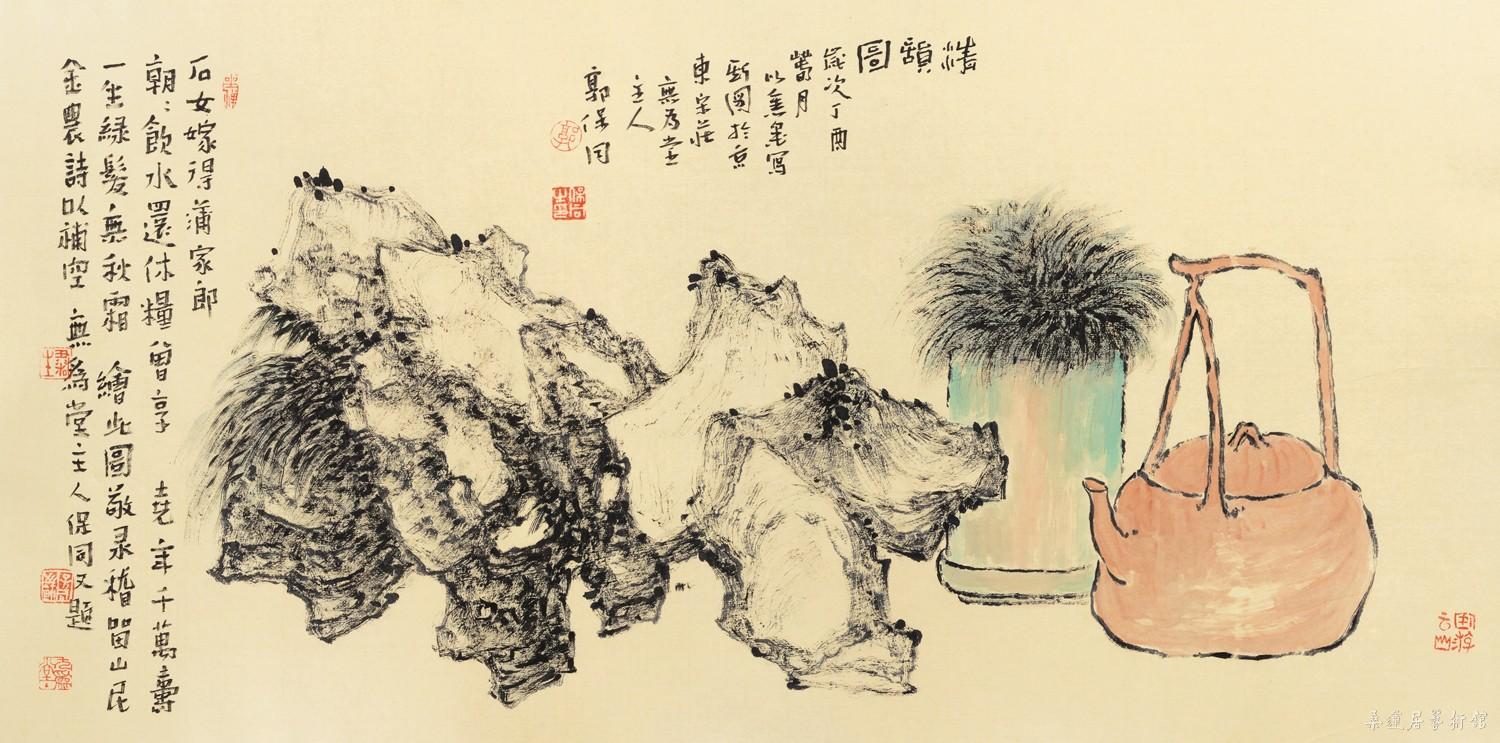 清韻圖
歲次丁酉
月
以焦墨寫
斯圖於京
東宋莊
無為堂
主人
郭保同
郭
石女嫁得蒲家郎
朝:飲水還休糧曾享 堯年千萬壽
一生綠髮無秋霜 繪此圖敬录稽留山民
金農詩以補空 無為堂主人保同又題
臥游云山
桑蓮居藝術館